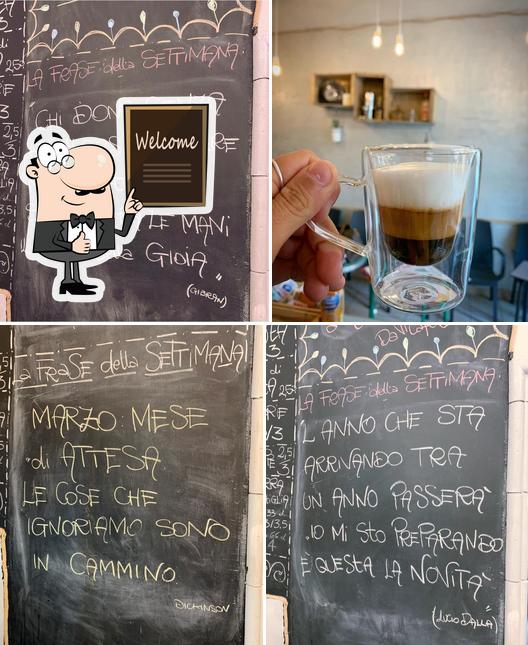 LA FRASE della SETTIMANA
CHI DON
Welcome
LE MANI
GIOIA"
(GIBRAN)
LA FRASE della SETTIMANA
MARZO: MESE
di ATTESA
LE COSE CHE
IGNORIAMO SONO
IN CAMMINO
DICKINSON
LA FRASE della SETTIMANA
L'ANNO CHE STA
ARRIVANDO TRA
UN ANNO PASSERA'
IO MI STO PREPARANDO
E' QUESTA LA NOVITA'"
(LUCIO DALLA)